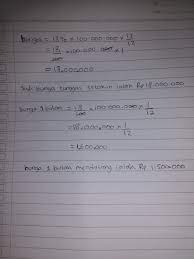 Bunga = 18% × 100.000.000 × 12/12
= 18/100 × 100.000.000 × 1
= 18.000.000
Jadi bunga tunggal setahun ialah Rp 18.000.000
bunga 1 bulan = 18/100 × 100.000.000 × 1/12
= 18.000.000 × 1/12
= 1.500.000
bunga 1 bulan menabung ialah Rp 1.500.000